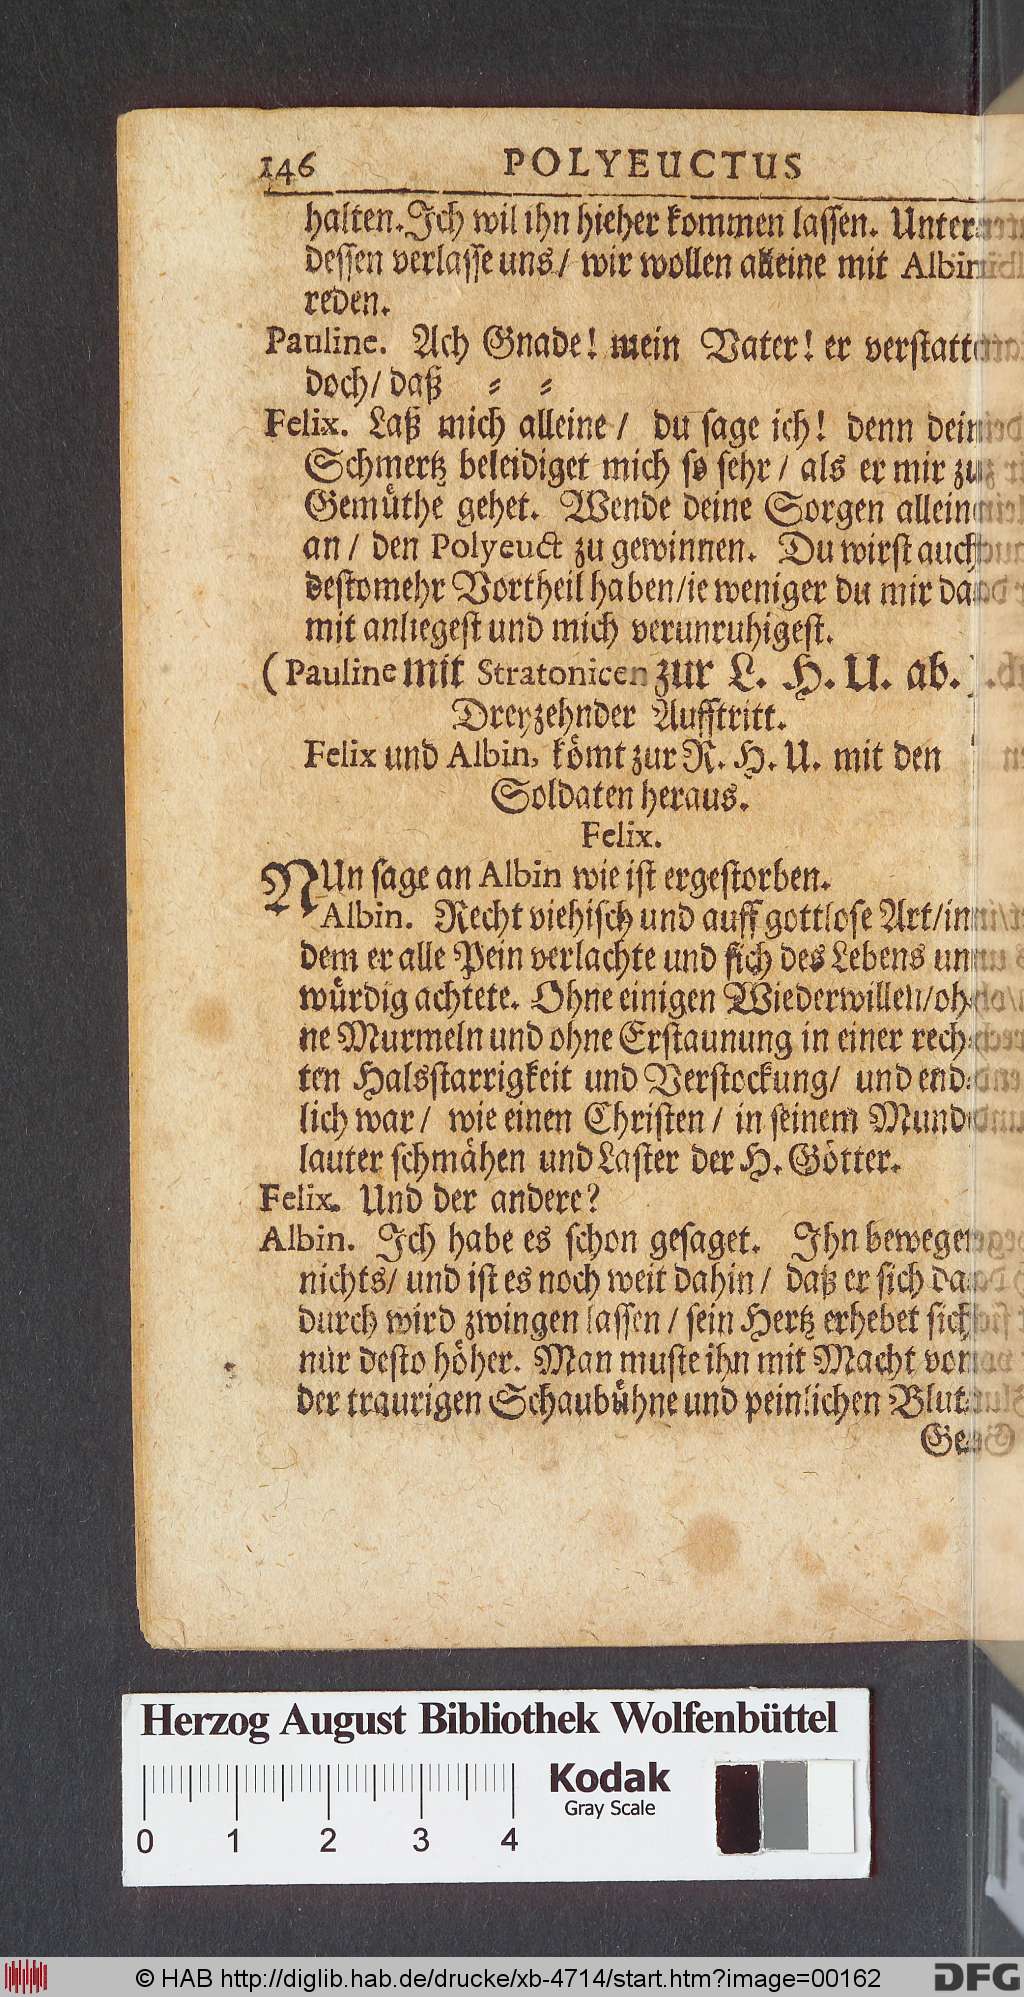 146 POLYEUCTUS
halten. Ich wil ihn hieher kommen lassen. Unter-
dessen verlasse uns/ wir wollen alleine mit Albin
reden.
Pauline. Ach Gnade! mein Vater! er verstatte
doch/ daß = =
Felix. Laß mich alleine/ du sage ich! denn dein
Schmertz beleidiget mich so sehr/ als er mir zu
Gemüthe gehet. Wende deine Sorgen allein
an/ den Polyeuct zu gewinnen. Du wirst auch
destomehr Vortheil haben/ie weniger du mir da-
mit anliegest und mich verunruhigest.
(Pauline mit Stratonicen zur L. H. U. ab.)
Dreyzehnder Aufftritt.
Felix und Albin, kömt zur R. H. U. mit den
Soldaten heraus.
Felix.
NUn sage an Albin wie ist ergestorben.
Albin. Recht viehisch und auff gottlose Art/in-
dem er alle Pein verlachte und sich des Lebens un-
würdig achtete. Ohne einigen Wiederwillen/oh-
ne Murmeln und ohne Erstaunung in einer rech-
ten Halsstarrigkeit und Verstockung/ und end-
lich war/ wie einen Christen/ in seinem Munde
lauter schmähen und Laster der H. Götter.
Felix. Und der andere?
Albin. Ich habe es schon gesaget. Ihn bewegen
nichts/ und ist es noch weit dahin/ daß er sich da-
durch wird zwingen lassen/ sein Hertz erhebet sich
nur desto höher. Man muste ihn mit Macht von
der traurigen Schaubühne und peinlichen Blut-
Ge-
Herzog August Bibliothek Wolfenbüttel
Kodak
Gray Scale
0 1 2 3 4
© HAB http://diglib.hab.de/drucke/xb-4714/start.htm?image=00162
DFG